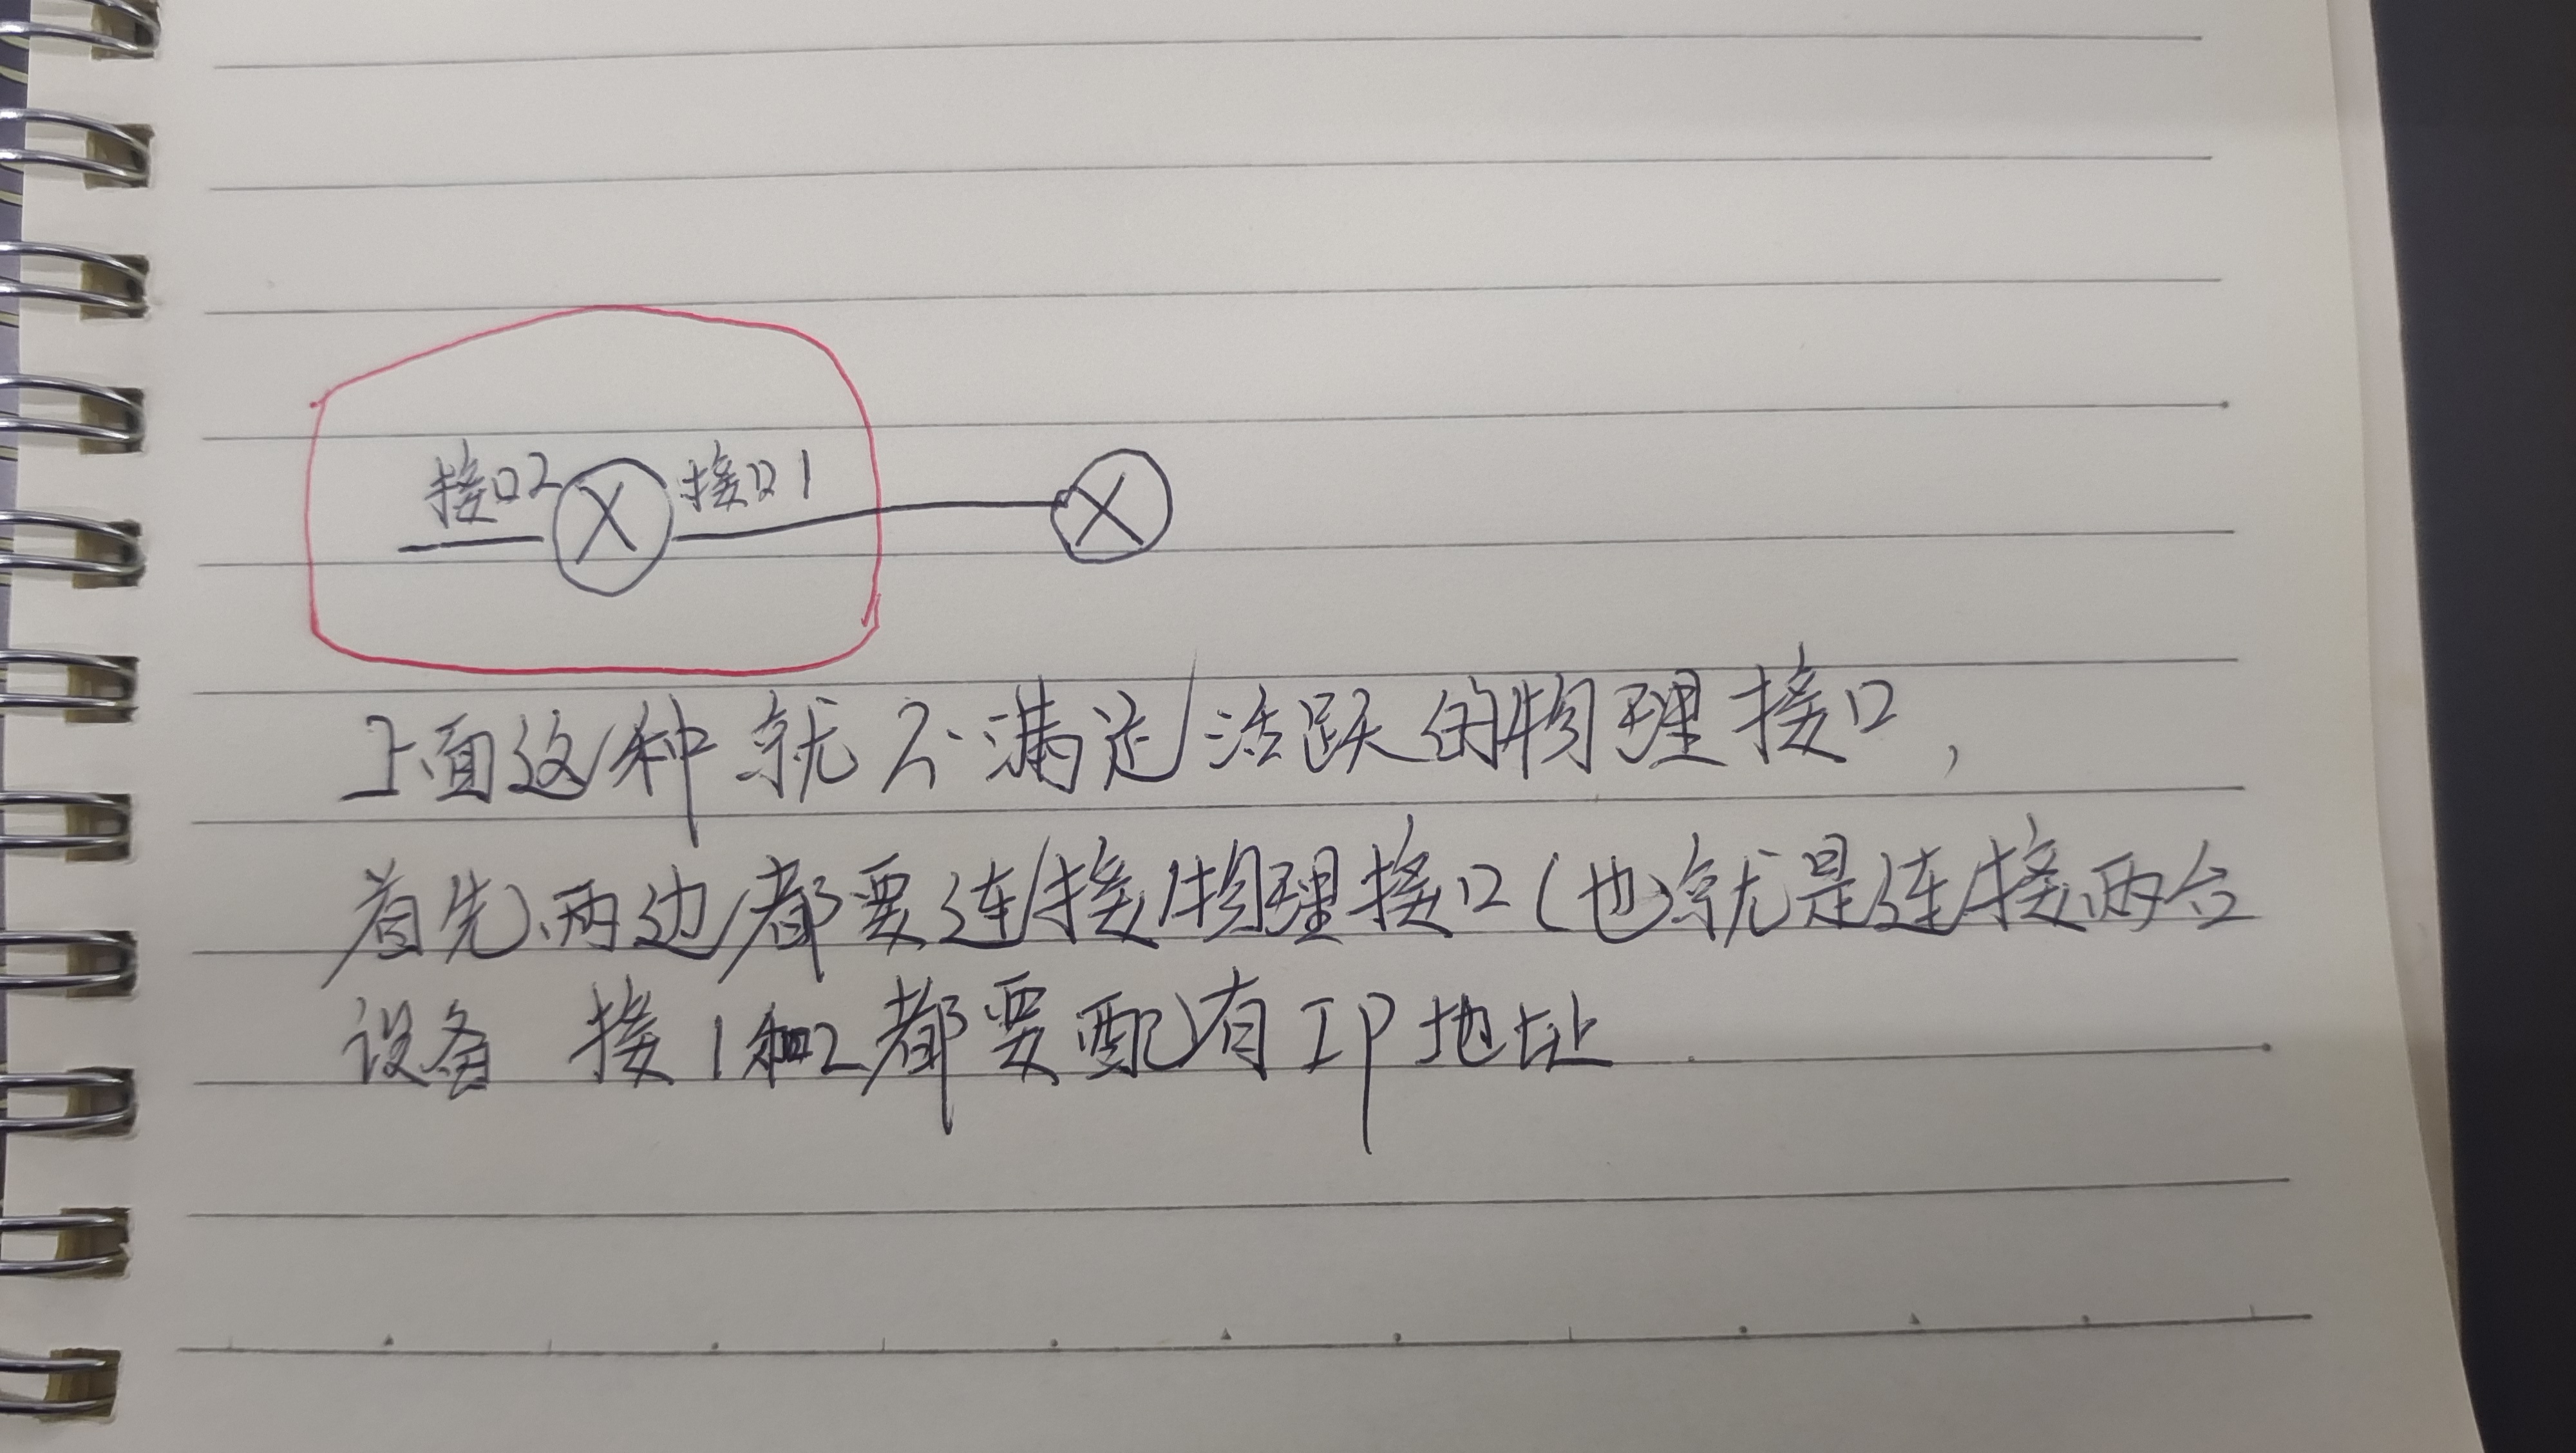 接口2 X 接口1 X
上面这种就不满足活跃的物理接口,
首先两边都要连接物理接口(也就是连接两台
设备 接1和2都要配有IP地址